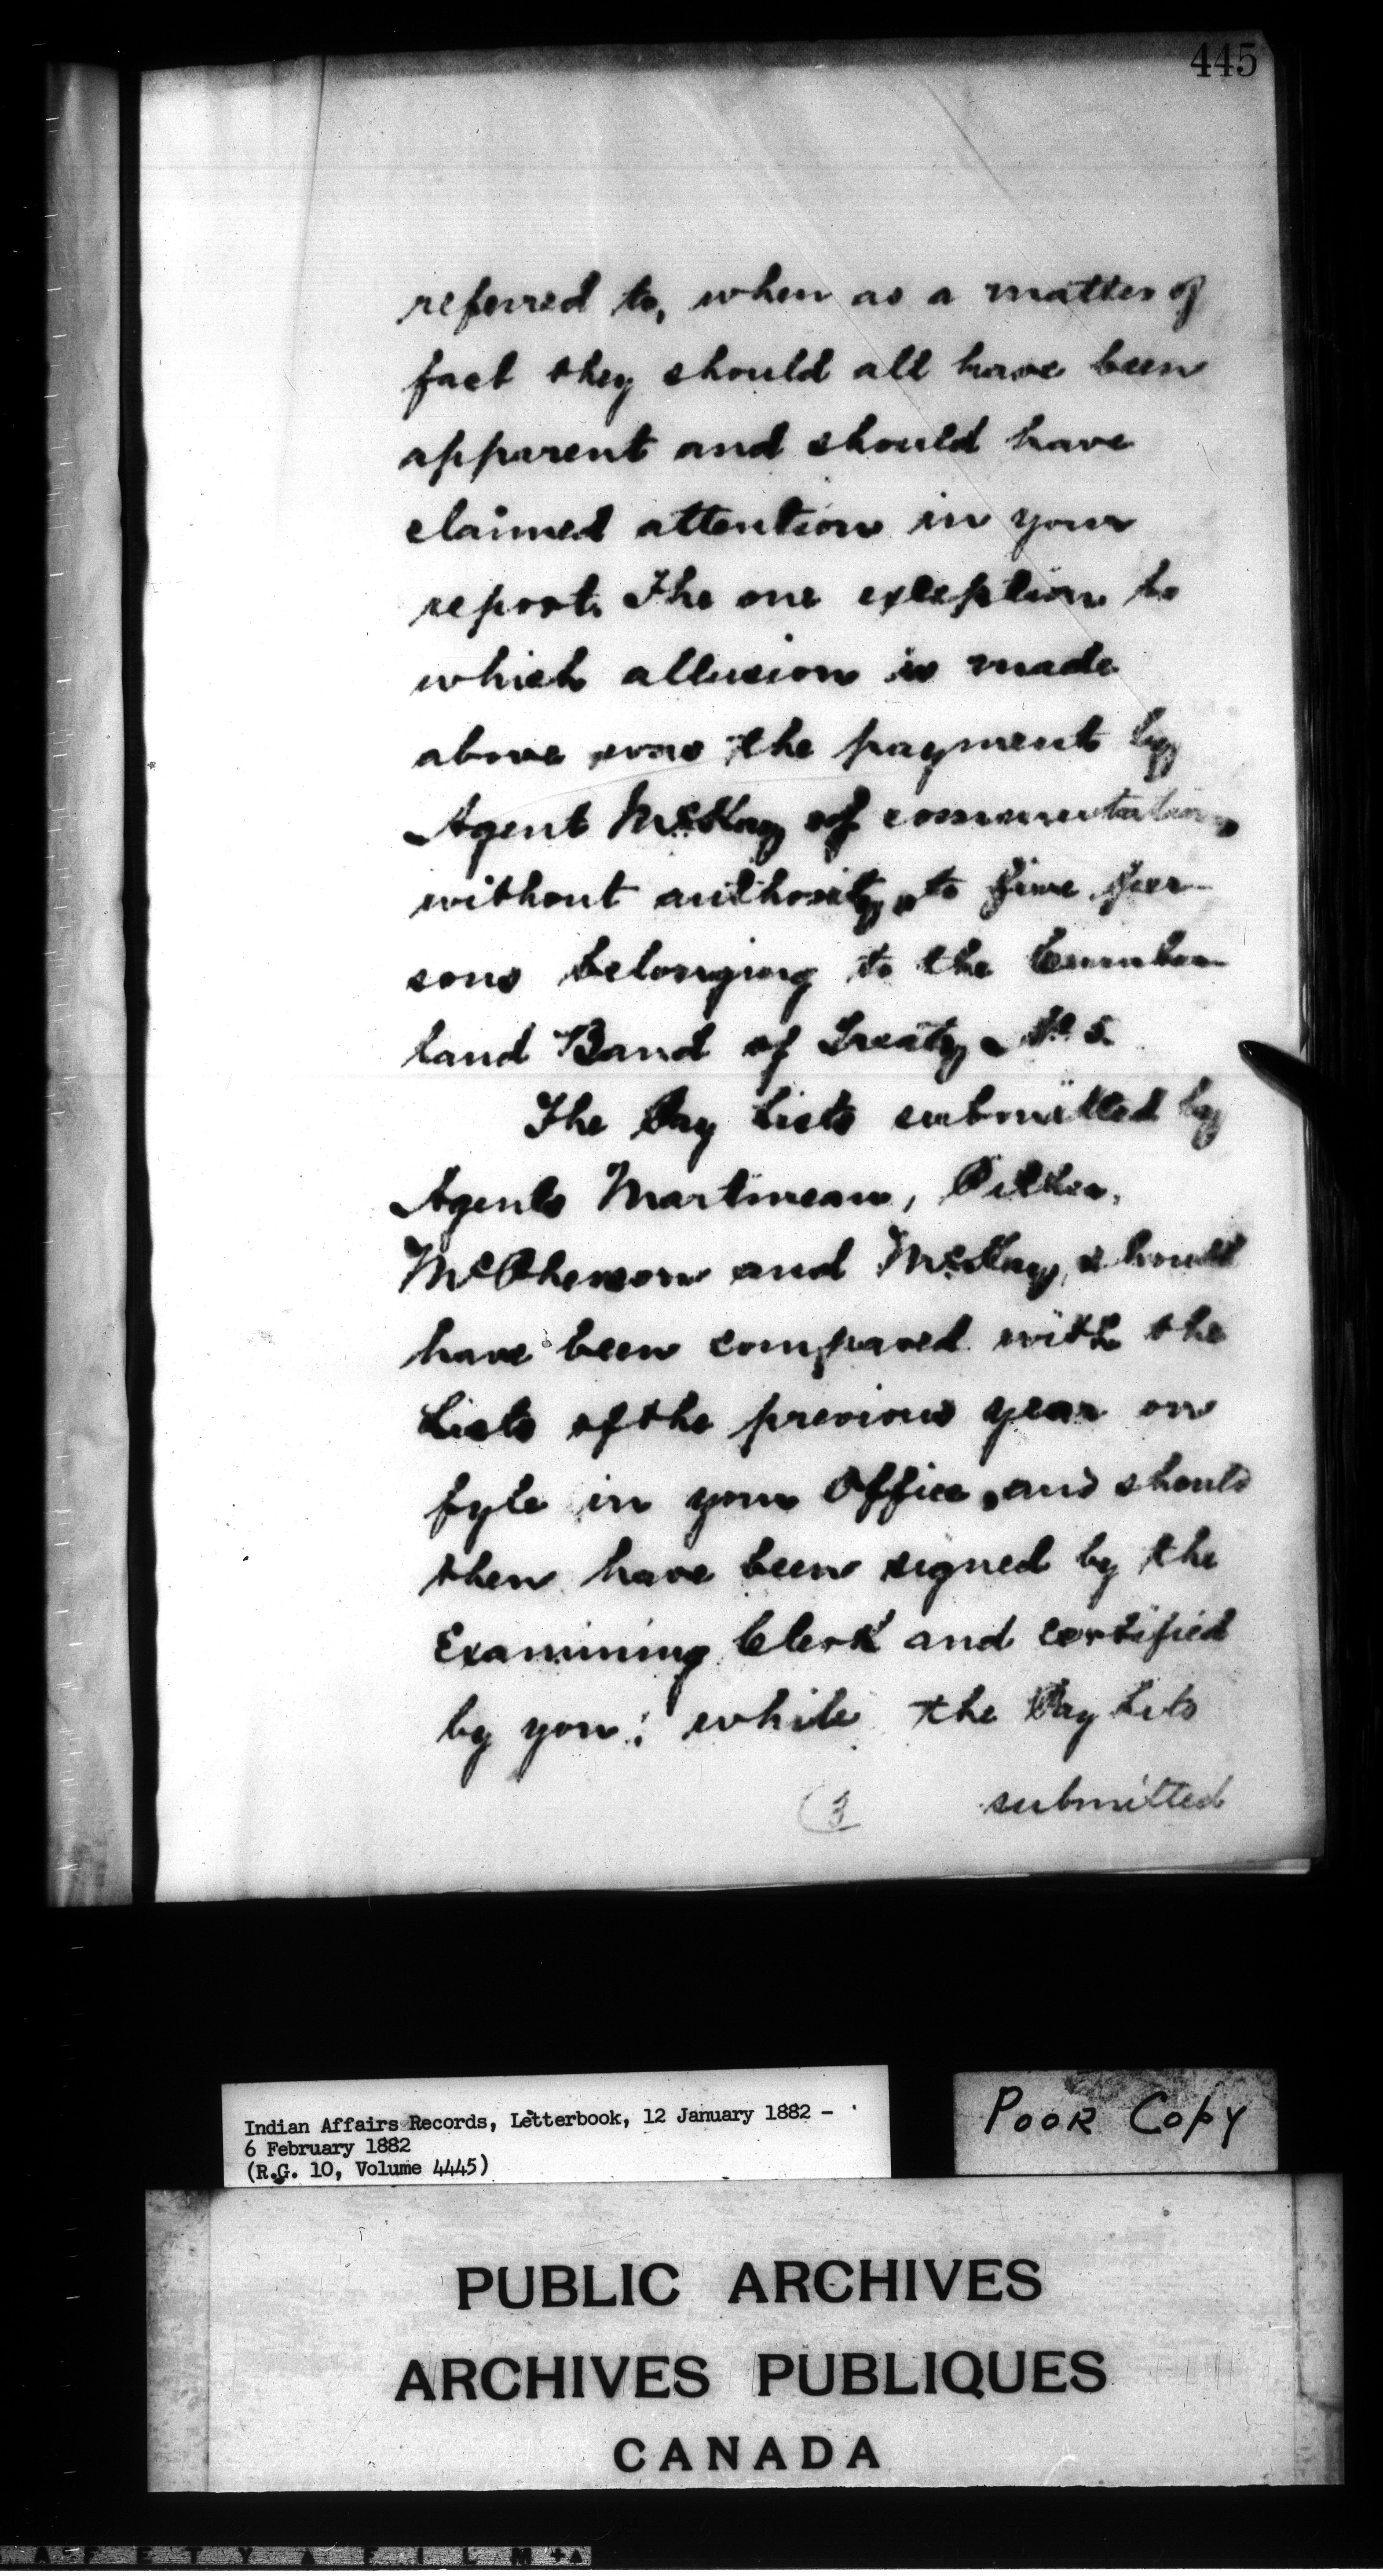 445
referred to, when as a matter of
fact they should all have been
apparent and should have
claimed attention in your
report. The one exception to
which allusion is made
above was the payment by
Agent McKay of commutation
without authority, to five per-
sons belonging to the Cumber-
land Band of Treaty No. 5.
The Pay Lists submitted by
Agents Martineau, Pither,
McPherson and McKay, should
have been compared with the
Lists of the previous year on
fyle in your Office, and should
then have been signed by the
Examining Clerk and certified
by you; while the Pay Lists
3 submitted
Indian Affairs Records, Letterbook, 12 January 1882 -
6 February 1882
(R.G. 10, Volume 4445)
POOR COPY
PUBLIC ARCHIVES
ARCHIVES PUBLIQUES
CANADA